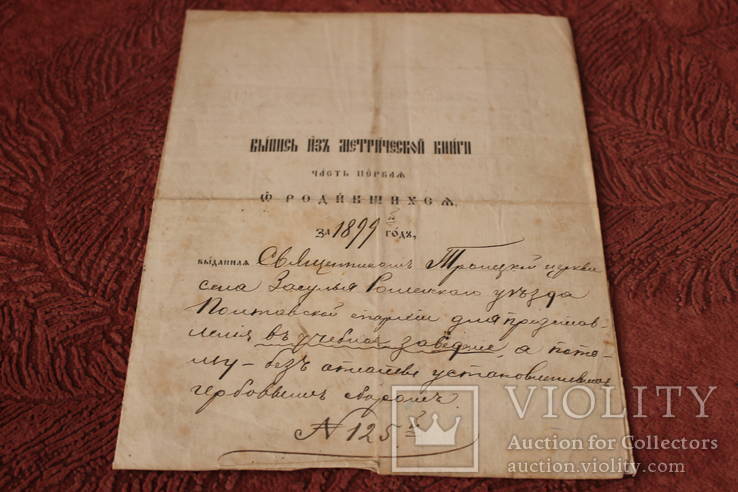 ВЫ́ПИСЬ И҆ЗЪ МЕТРИ́ЧЕСКОЙ КНИ́ГИ
ЧАСТЬ ПЕ́РВАѦ
Ѽ РОДИ́ВШИХСѦ,
ЗА 1899 й ГО́ДЪ,
ВЫ́ДАННАѦ Священникомъ Троицкой церкви
села Засулья Роменскаго уѣзда
Полтавской епархіи для представ-
ленія въ учебное заведеніе, а пото-
му - безъ оплаты установленнымъ
гербовымъ сборомъ.
N 125 й
VIOLITY
Auction for Collectors
auction.violity.com